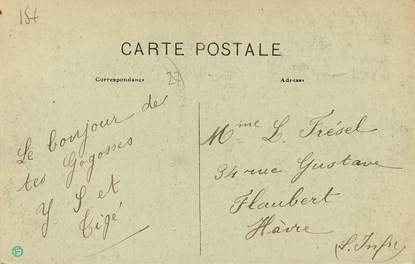 15+
CARTE POSTALE
Correspondance
Adresse
Le bonjour de
tes Gogosses
Y. S et
Gigé
Mme L. Frésel
34 rue Gustave
Flaubert
Hâvre
(S. Infre)